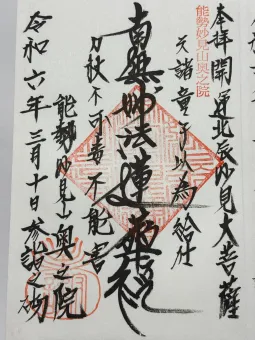 能勢妙見山奥之院
奉拝開運北辰妙見大菩薩
天諸童子以為給仕
南無妙法蓮華経
刀杖不可毒不能害
能勢妙見山奥之院
令和六年三月十日参詣之砌